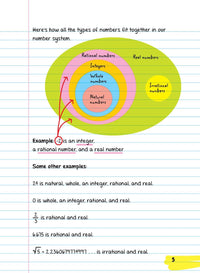 Here's how all the types of numbers fit together in our
number system:
Rational numbers
Real numbers
Integers
Whole
numbers
Irrational
numbers
Natural
numbers
Example: -2 is an integer,
a rational number, and a real number.
Some other examples:
24 is natural, whole, an integer, rational, and real.
0 is whole, an integer, rational, and real.
2/3 is rational and real.
6.675 is rational and real.
√5 = 2.2360679774997 . . . is irrational and real.
5